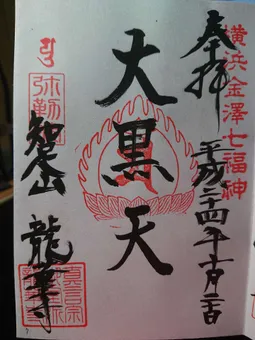 横浜金澤七福神
奉拝
平成二十四年
大黒天
弥勒
知足山 龍華寺
真言宗